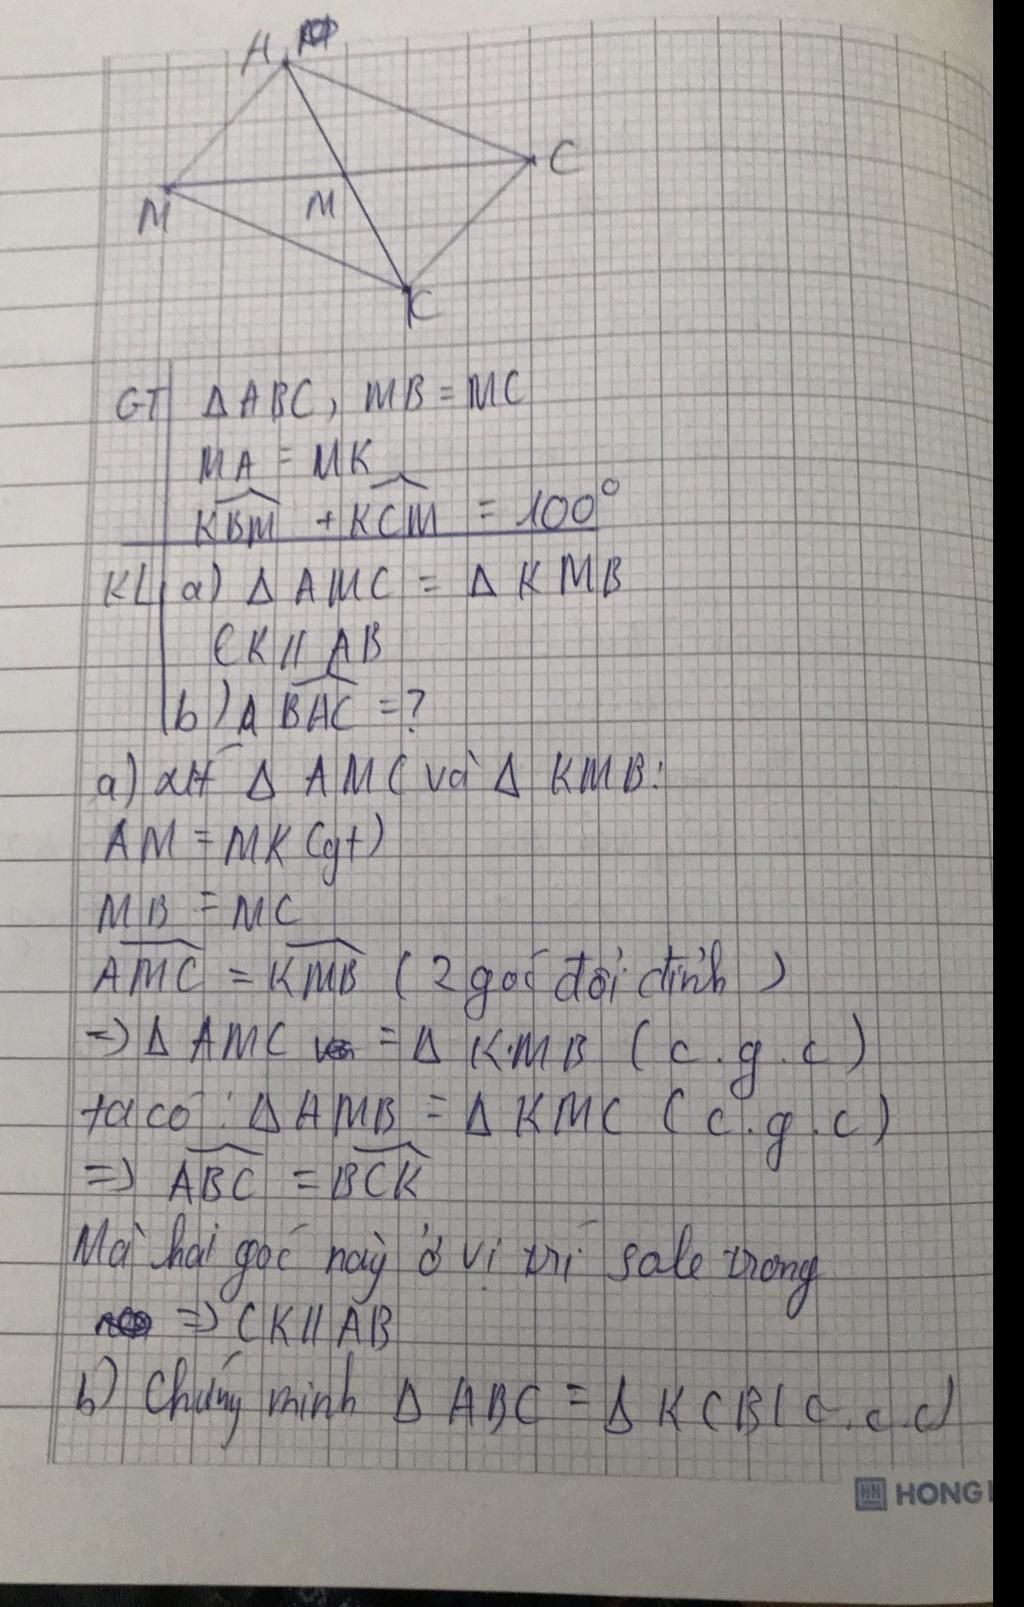 A
C
M
M
K
GT ΔABC, MB = MC
MA = MK
KBM + KCM = 100°
KL a) Δ AMC = Δ KMB
CK // AB
b) Δ BAC = ?
a) xét Δ AMC và Δ KMB:
AM = MK (gt)
MB = MC
AMC = KMB ( 2 góc đối đỉnh )
=> Δ AMC = Δ KMB ( c.g.c )
ta có : Δ AMB = Δ KMC ( c.g.c )
=> ABC = BCK
Mà hai góc này ở vị trí sole trong
=> CK // AB
b) Chứng minh Δ ABC = Δ KCB ( c.c.c )
HONG